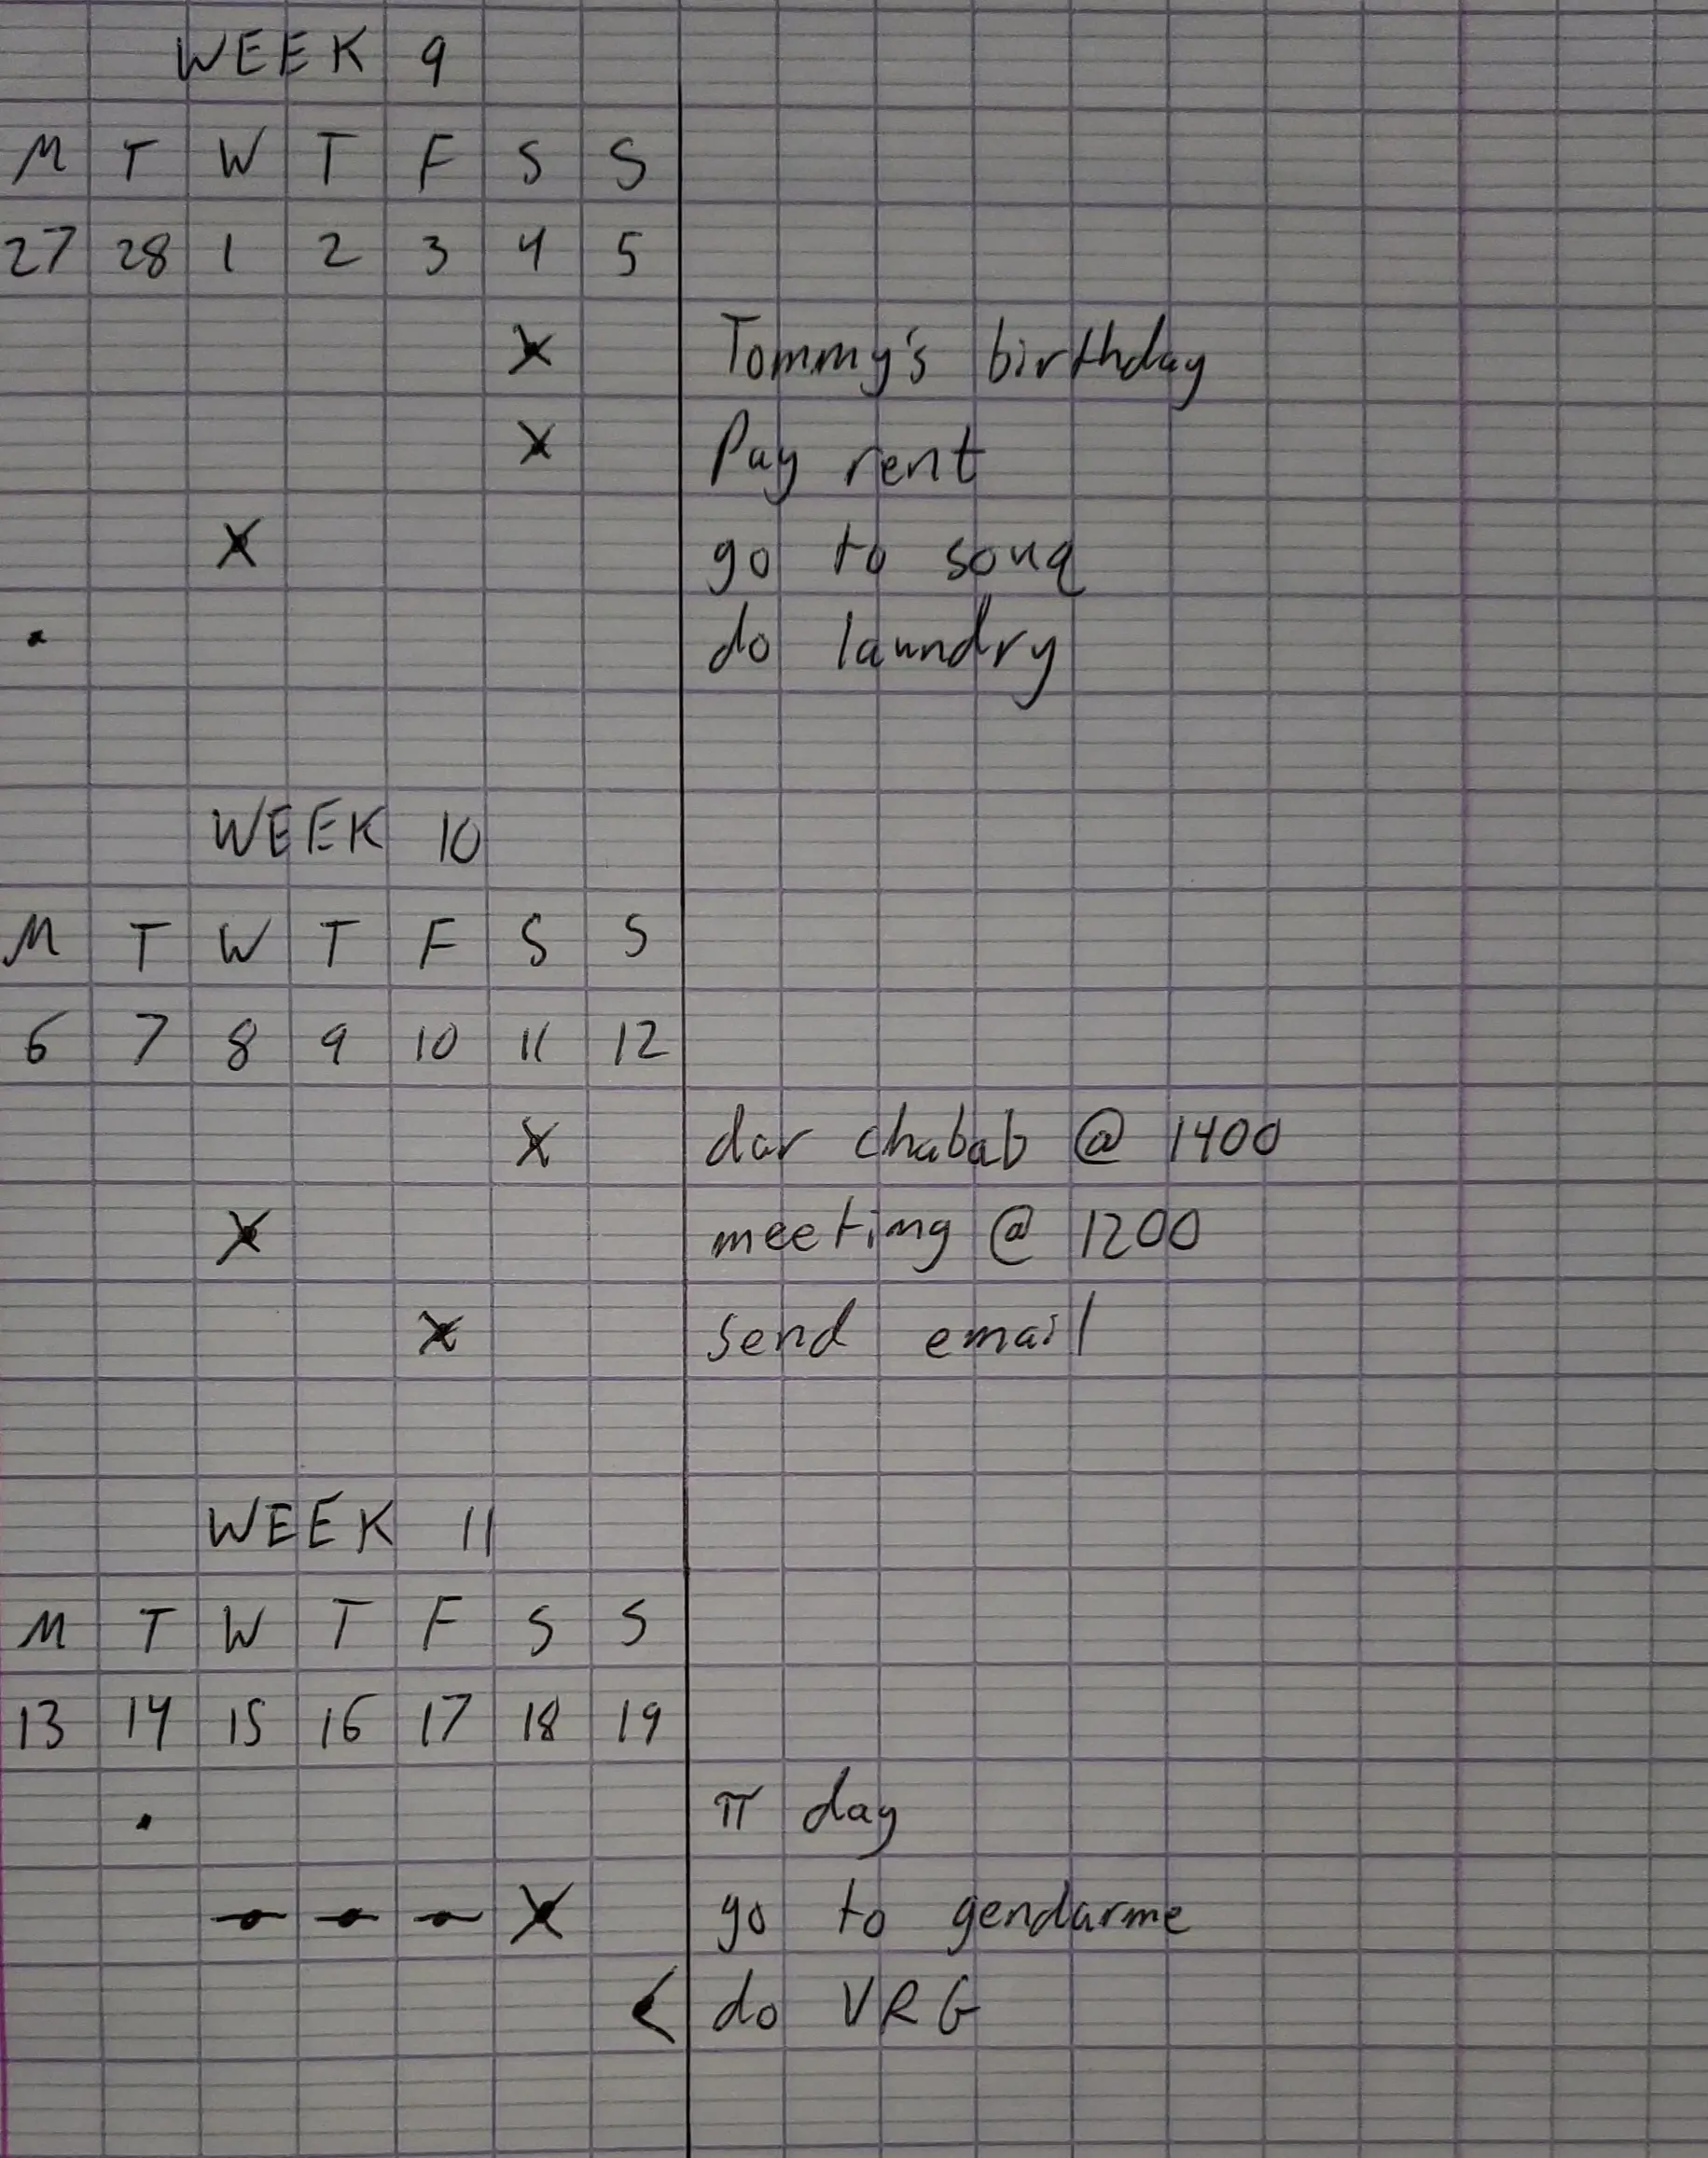 WEEK 9
M T W T F S S
27 28 1 2 3 4 5
x Tommy's birthday
x Pay rent
x go to souq
• do laundry
WEEK 10
M T W T F S S
6 7 8 9 10 11 12
x dar chabab @ 1400
x meeting @ 1200
x send email
WEEK 11
M T W T F S S
13 14 15 16 17 18 19
• π day
x go to gendarme
< do VRG